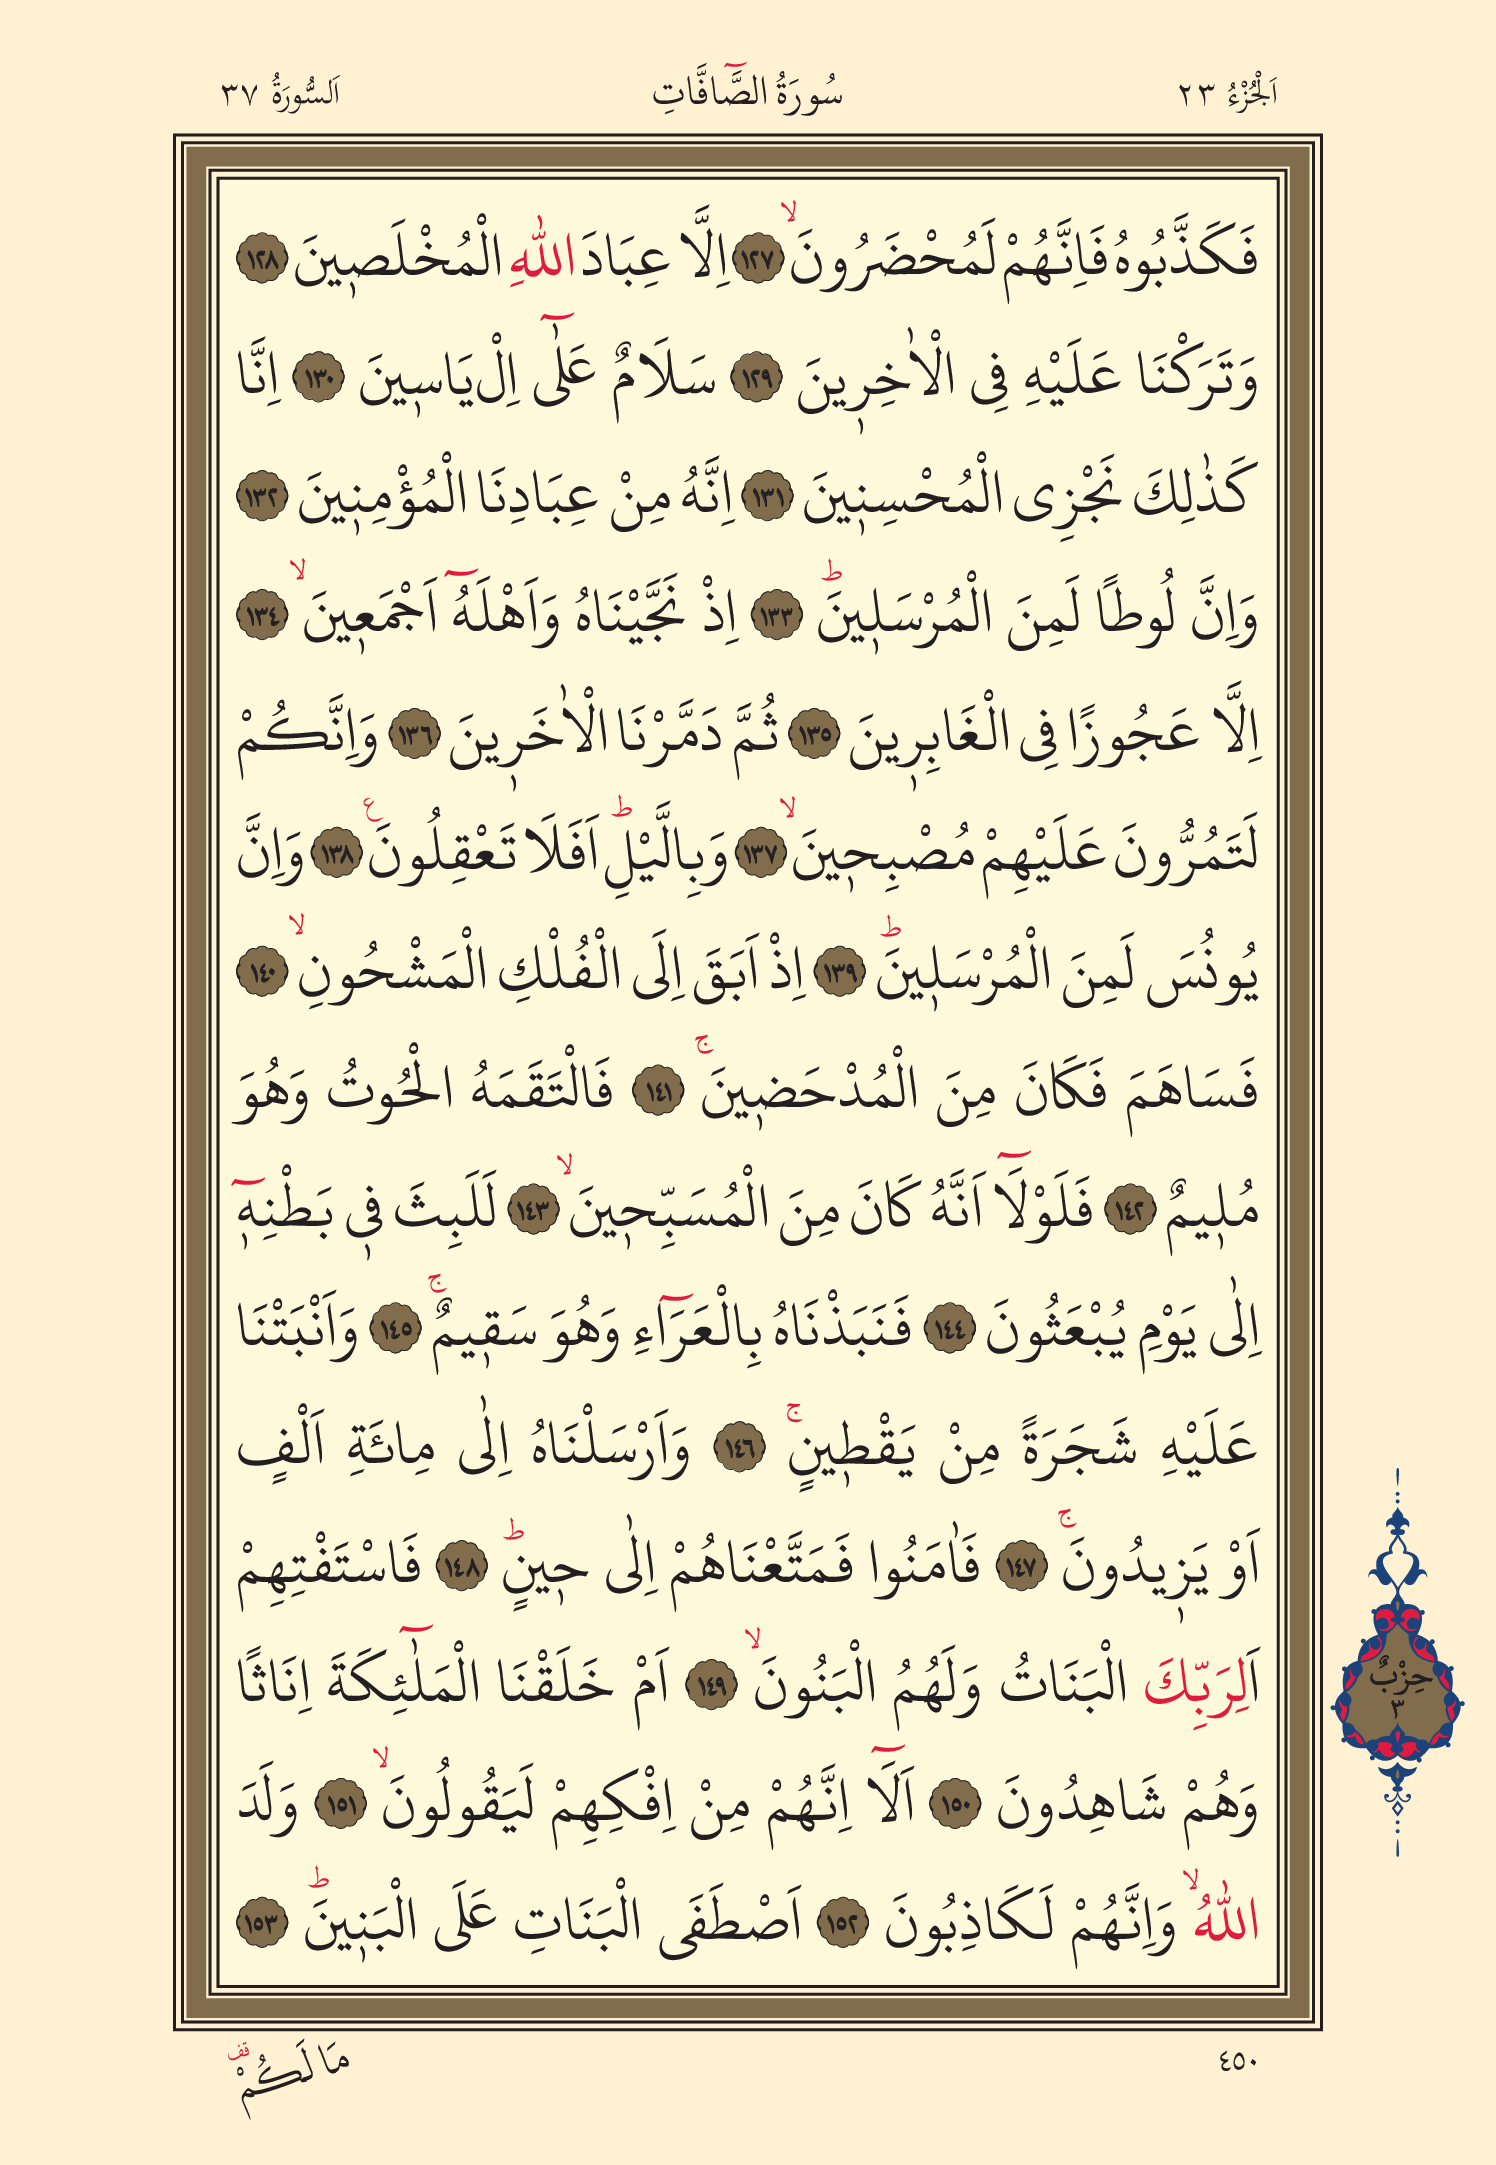 اَلْجُزْءُ ٢٣
سُورَةُ الصَّٓافَّاتِ
اَلسُّورَةُ ٣٧
فَكَذَّبُوهُ فَاِنَّهُمْ لَمُحْضَرُونَۙ ﴿١٢٧﴾ اِلَّا عِبَادَ اللّٰهِ الْمُخْلَص۪ينَ ﴿١٢٨﴾
وَتَرَكْنَا عَلَيْهِ فِى الْاٰخِر۪ينَ ﴿١٢٩﴾ سَلَامٌ عَلٰٓى اِلْ يَاس۪ينَ ﴿١٣٠﴾ اِنَّا
كَذٰلِكَ نَجْزِى الْمُحْسِن۪ينَ ﴿١٣١﴾ اِنَّهُ مِنْ عِبَادِنَا الْمُؤْمِن۪ينَ ﴿١٣٢﴾
وَاِنَّ لُوطًا لَمِنَ الْمُرْسَل۪ينَۜ ﴿١٣٣﴾ اِذْ نَجَّيْنَاهُ وَاَهْلَهُٓ اَجْمَع۪ينَۙ ﴿١٣٤﴾
اِلَّا عَجُوزًا فِى الْغَابِر۪ينَ ﴿١٣٥﴾ ثُمَّ دَمَّرْنَا الْاٰخَر۪ينَ ﴿١٣٦﴾ وَاِنَّكُمْ
لَتَمُرُّونَ عَلَيْهِمْ مُصْبِح۪ينَۙ ﴿١٣٧﴾ وَبِالَّيْلِۜ اَفَلَا تَعْقِلُونَ۟ ﴿١٣٨﴾ وَاِنَّ
يُونُسَ لَمِنَ الْمُرْسَل۪ينَۜ ﴿١٣٩﴾ اِذْ اَبَقَ اِلَى الْفُلْكِ الْمَشْحُونِۙ ﴿١٤٠﴾
فَسَاهَمَ فَكَانَ مِنَ الْمُدْحَض۪ينَۚ ﴿١٤١﴾ فَالْتَقَمَهُ الْحُوتُ وَهُوَ
مُل۪يمٌ ﴿١٤٢﴾ فَلَوْلَٓا اَنَّهُ كَانَ مِنَ الْمُسَبِّح۪ينَۙ ﴿١٤٣﴾ لَلَبِثَ ف۪ى بَطْنِه۪ٓ
اِلٰى يَوْمِ يُبْعَثُونَ ﴿١٤٤﴾ فَنَبَذْنَاهُ بِالْعَرَٓاءِ وَهُوَ سَق۪يمٌۚ ﴿١٤٥﴾ وَاَنْبَتْنَا
عَلَيْهِ شَجَرَةً مِنْ يَقْط۪ينٍۚ ﴿١٤٦﴾ وَاَرْسَلْنَاهُ اِلٰى مِائَةِ اَلْفٍ
اَوْ يَز۪يدُونَۚ ﴿١٤٧﴾ فَاٰمَنُوا فَمَتَّعْنَاهُمْ اِلٰى ح۪ينٍۜ ﴿١٤٨﴾ فَاسْتَفْتِهِمْ
اَلِرَبِّكَ الْبَنَاتُ وَلَهُمُ الْبَنُونَۙ ﴿١٤٩﴾ اَمْ خَلَقْنَا الْمَلٰٓئِكَةَ اِنَاثًا
وَهُمْ شَاهِدُونَ ﴿١٥٠﴾ اَلَٓا اِنَّهُمْ مِنْ اِفْكِهِمْ لَيَقُولُونَۙ ﴿١٥١﴾ وَلَدَ
اللّٰهُۙ وَاِنَّهُمْ لَكَاذِبُونَ ﴿١٥٢﴾ اَصْطَفَى الْبَنَاتِ عَلَى الْبَن۪ينَۜ ﴿١٥٣﴾
حِزْبٌ
٣
٤٥٠
مَا لَكُمْ قف